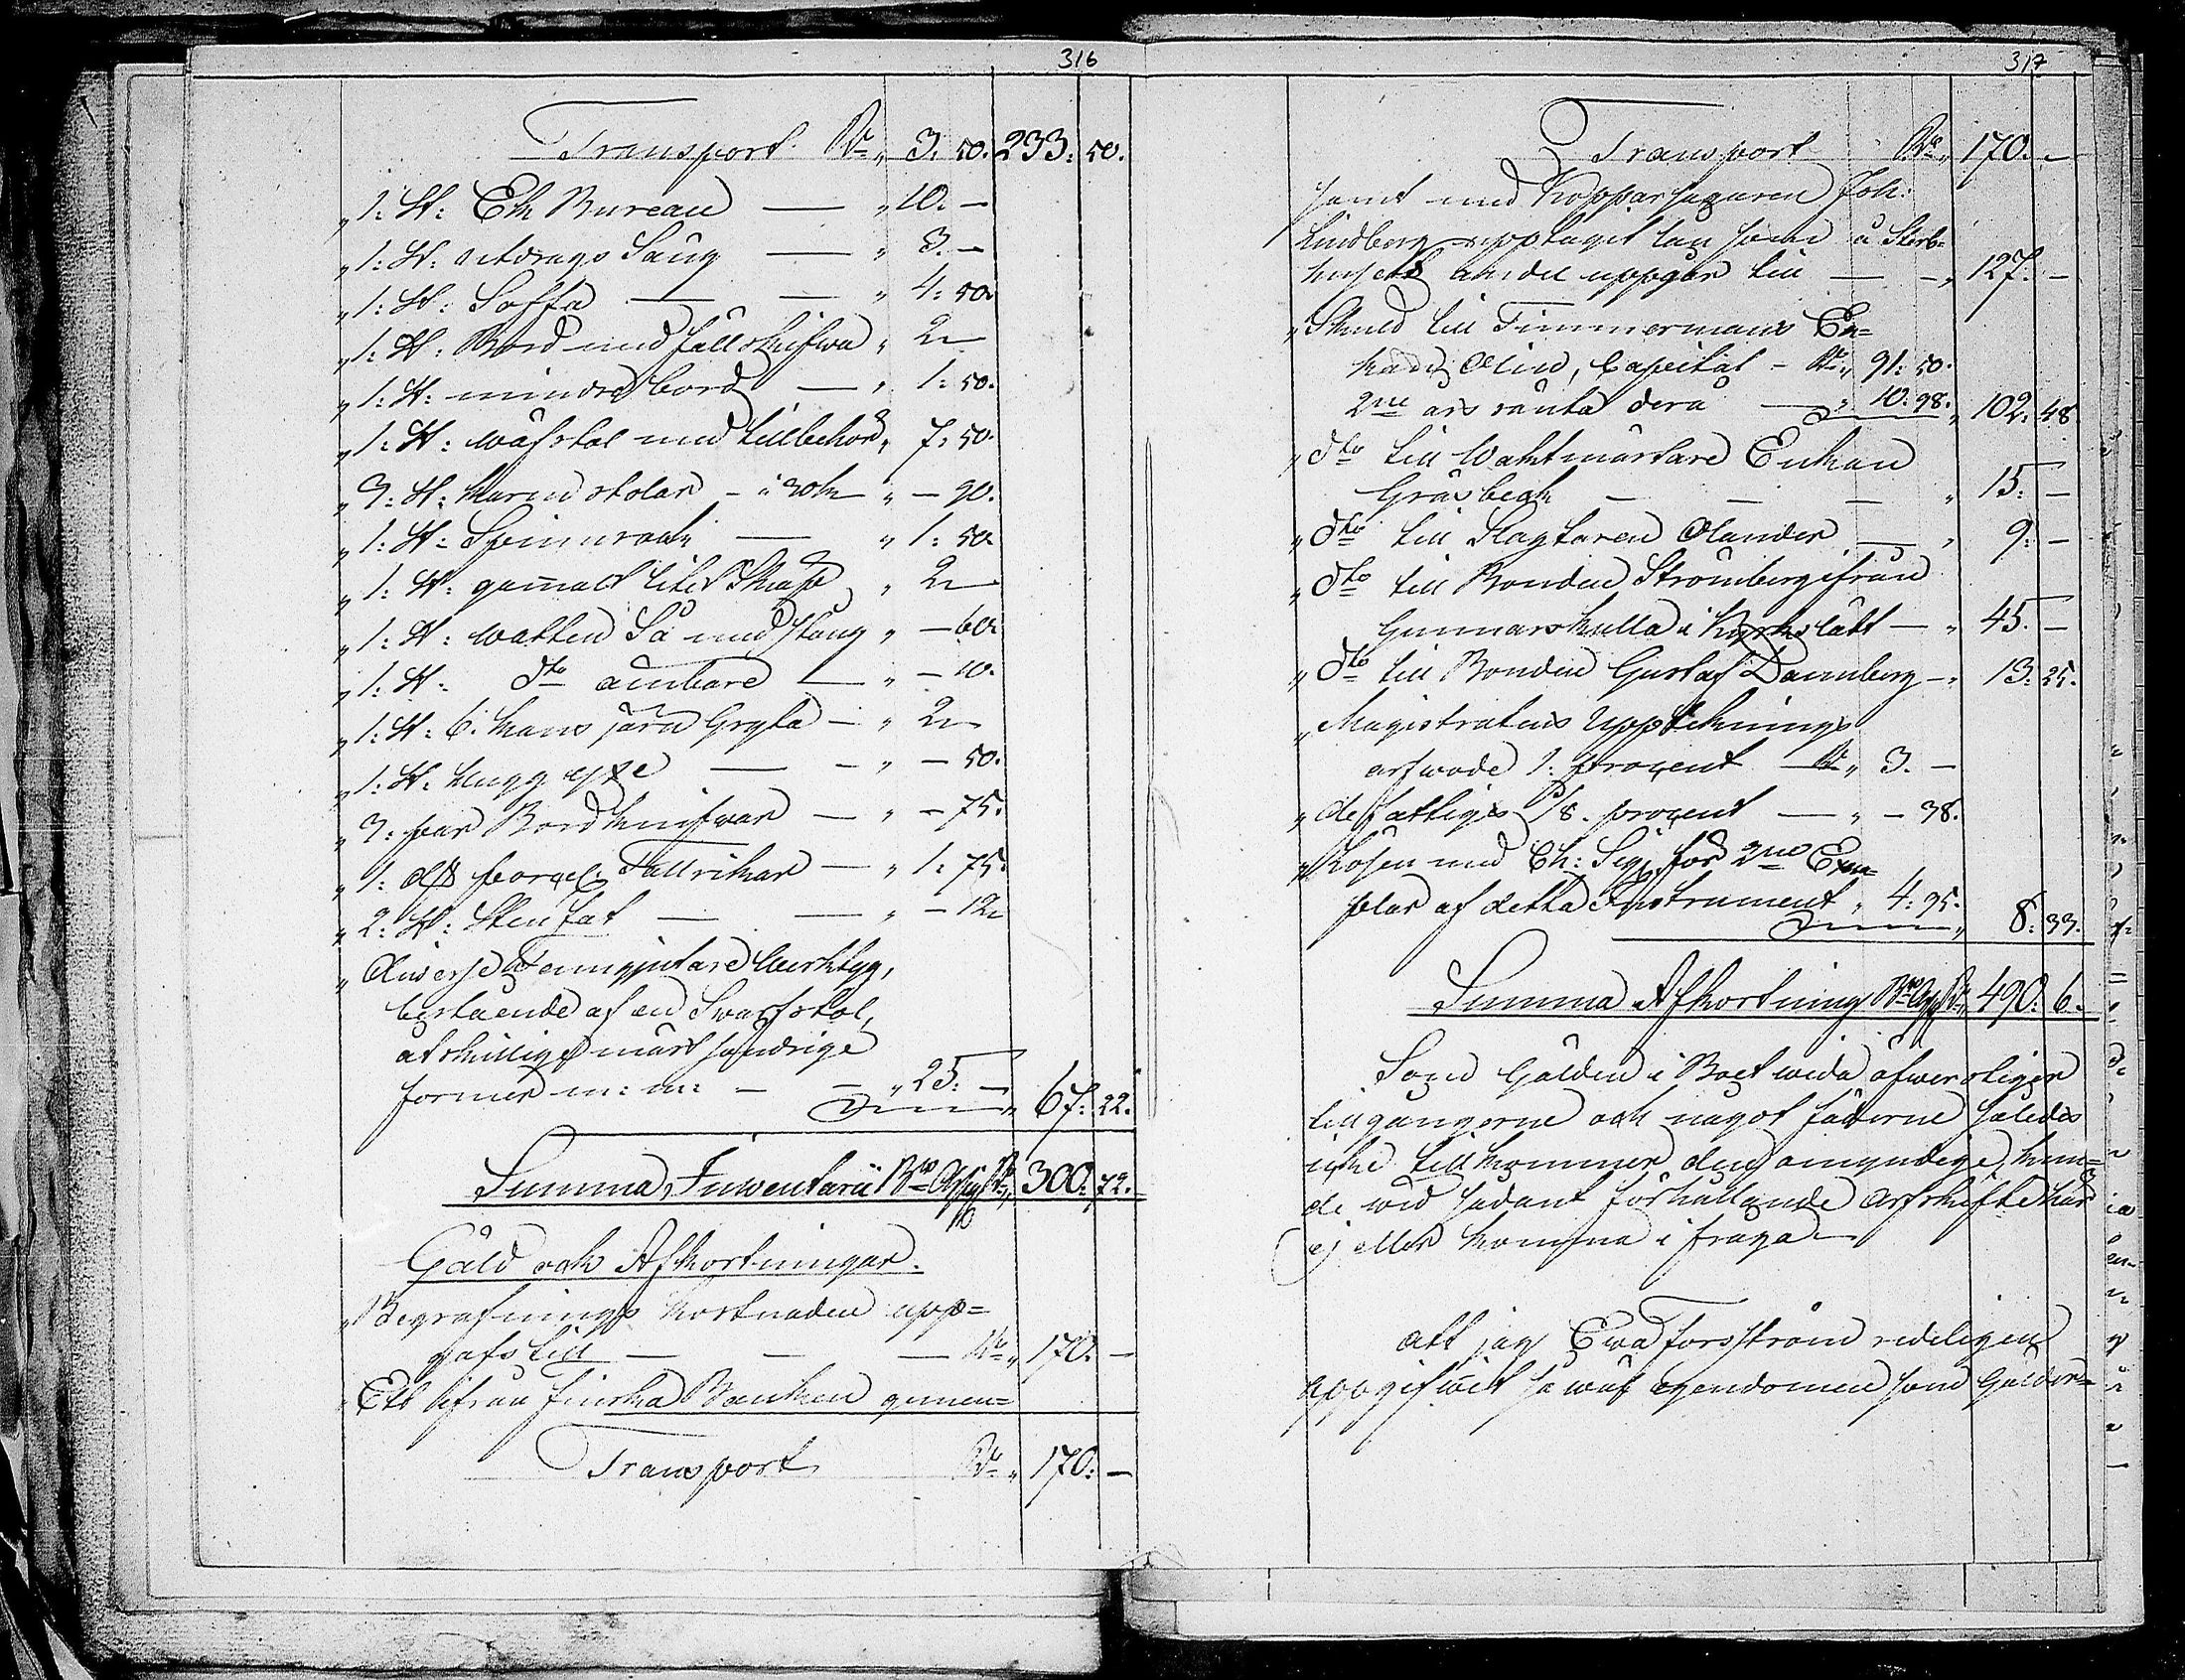 316
Transport Ro „ 3: 50. 233: 50.
„ 1: st: Ek Bureau — „ 10. —
„ 1: st: utdrags Säng — „ 3. —
„ 1: st: Soffa — — „ 4: 50.
„ 1: st: Bord med fällskifwa „ 2. —
„ 1: st: mindre bord — „ 1: 50.
„ 1: st: wäfstol med tillbehör „ 7: 50.
„ 3: st: karm stolar - à 30 k „ — 90.
„ 1: st: Spinnrock — „ 1: 50.
„ 1: st: gamalt litet Skåp „ 2. —
„ 1: st: watten Så med stång „ — 60.
„ 1: st: dto ämbare — „ — 10.
„ 1: st: 6. kans järn Gryta — „ 2. —
„ 1: st: hugg yxe — — „ — 50.
„ 3: par Bordknifwar — „ — 75.
„ 1: dss porcel. Tallrikar — „ 1: 75.
„ 2: st: Sten fat — — „ — 12.
„ Diverse Tenngjutare Werktyg,
bestående af en Swarfstol,
åtskillige märt söndrige
former m: m: — — „ 25. — 67: 22.
Summa Inventarii Ro Assig Ro „ 300: 72.
Gäld och Afkortningar.
„ Begrafnings kostnaden upp=
gafs till — — — Ro „ 170. —
Ett ifrån finska Banken gemen=
Transport Ro „ 170: —
317
Transport Ro „ 170. —
samt med Kopparslagaren Joh:
Lindberg upptaget lån som å Sterb=
husets andel uppgår till — — „ 127. —
„ Skuld till Timmermans En=
kan Olin, Capital — Ro „ 91: 50.
2ne års ränta derå — „ 10: 98. „ 102: 48
„ dto till Waktmästare Enkan
Gräsbeck — — — „ 15: —
„ dto till Slagtaren Olander — „ 9: —
„ dto till Bonden Strömberg ifrån
Gunnarskulla i Kyrkslätt — „ 45. —
„ dto till Bonden Gustaf Dannberg — „ 13: 25.
„ Magistratens Uppteknings
arfwode 1: procent Ro „ 3. —
„ de fattiges 1/8. procent — „ — 38.
„ Lösen med Ch: Sig: för 2ne Exem=
plar af detta Instrument „ 4: 95. „ 8: 33.
Summa Afkortning Ro Assig Ro „ 490: 6.
Som Gälden i Boet wida öfwerstiger
tillgångerne och något fäderne således
icke tillkommer den omyndige, kun=
de wid sådant förhållande arfskifte här
ej eller komma i fråga —
att jag Ewa Forsström redeligen
uppgifwit så wäl egendomen som Gälder=